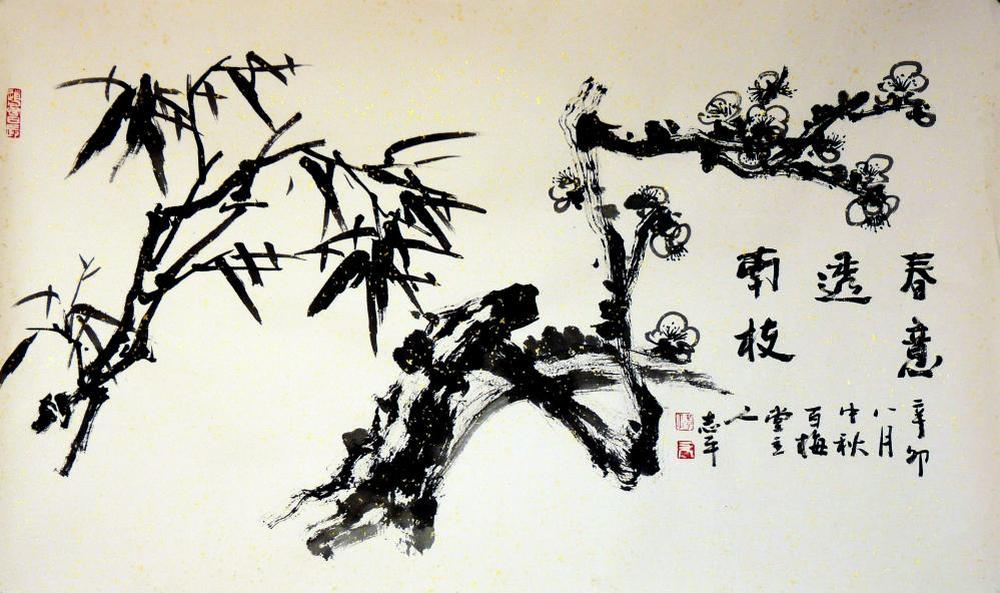 春意
透
南枝
辛卯
八月
中秋
百梅
堂主
志平